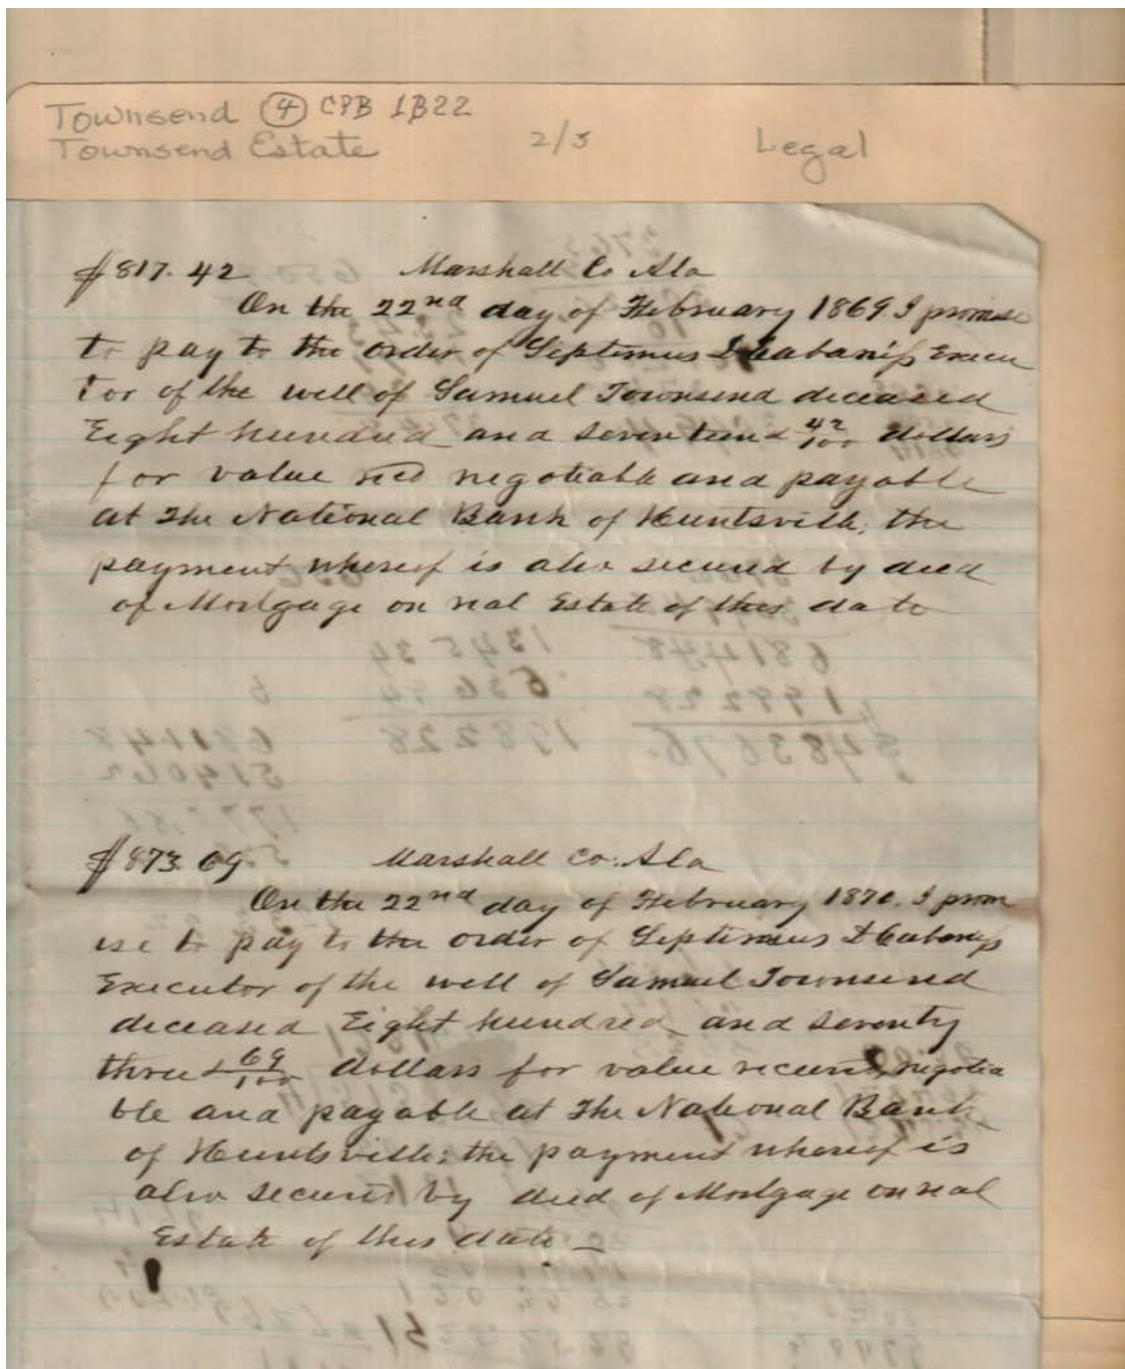 Townsend ④ CPB 1B22
Townsend Estate 2/3 Legal
$817.42 Marshall Co Ala
On the 22nd day of February 1869. I promise
to pay to the order of Septimus D Cabaniss Execu
tor of the will of Samuel Townsend deceased
Eight hundred and seventeen & 42/100 dollars
for value recd negotiable and payable
at The National Bank of Huntsville; the
payment whereof is also secured by deed
of Mortgage on real Estate of this date
$873.69 Marshall Co. Ala
On the 22nd day of February 1870. I prom
ise to pay to the order of Septimus D Cabaniss
Executor of the will of Samuel Townsend
deceased Eight hundred and seventy
three & 69/100 dollars for value received, negotia
ble and payable at The National Bank
of Huntsville; the payment whereof is
also secured by deed of Mortgage on real
Estate of this date —